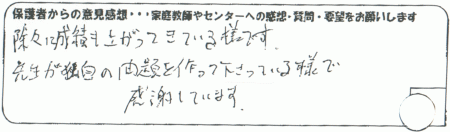 保護者からの意見感想・・・家庭教師やセンターへの感想・質問・要望をお願いします
除々に成績も上がってきている様です。
先生が独自の問題を作って下さっている様で
感謝しています。